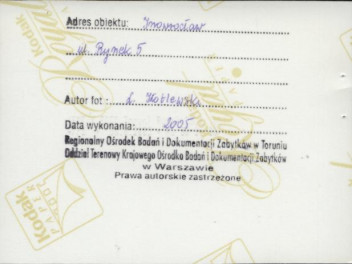 Adres obiektu: Inowrocław
ul. Rynek 5
Autor fot: Ł. Kotlewska
Data wykonania: 2005
Regionalny Ośrodek Badań i Dokumentacji Zabytków w Toruniu
Oddział Terenowy Krajowego Ośrodka Badań i Dokumentacji Zabytków
w Warszawie
Prawa autorskie zastrzeżone
Kodak